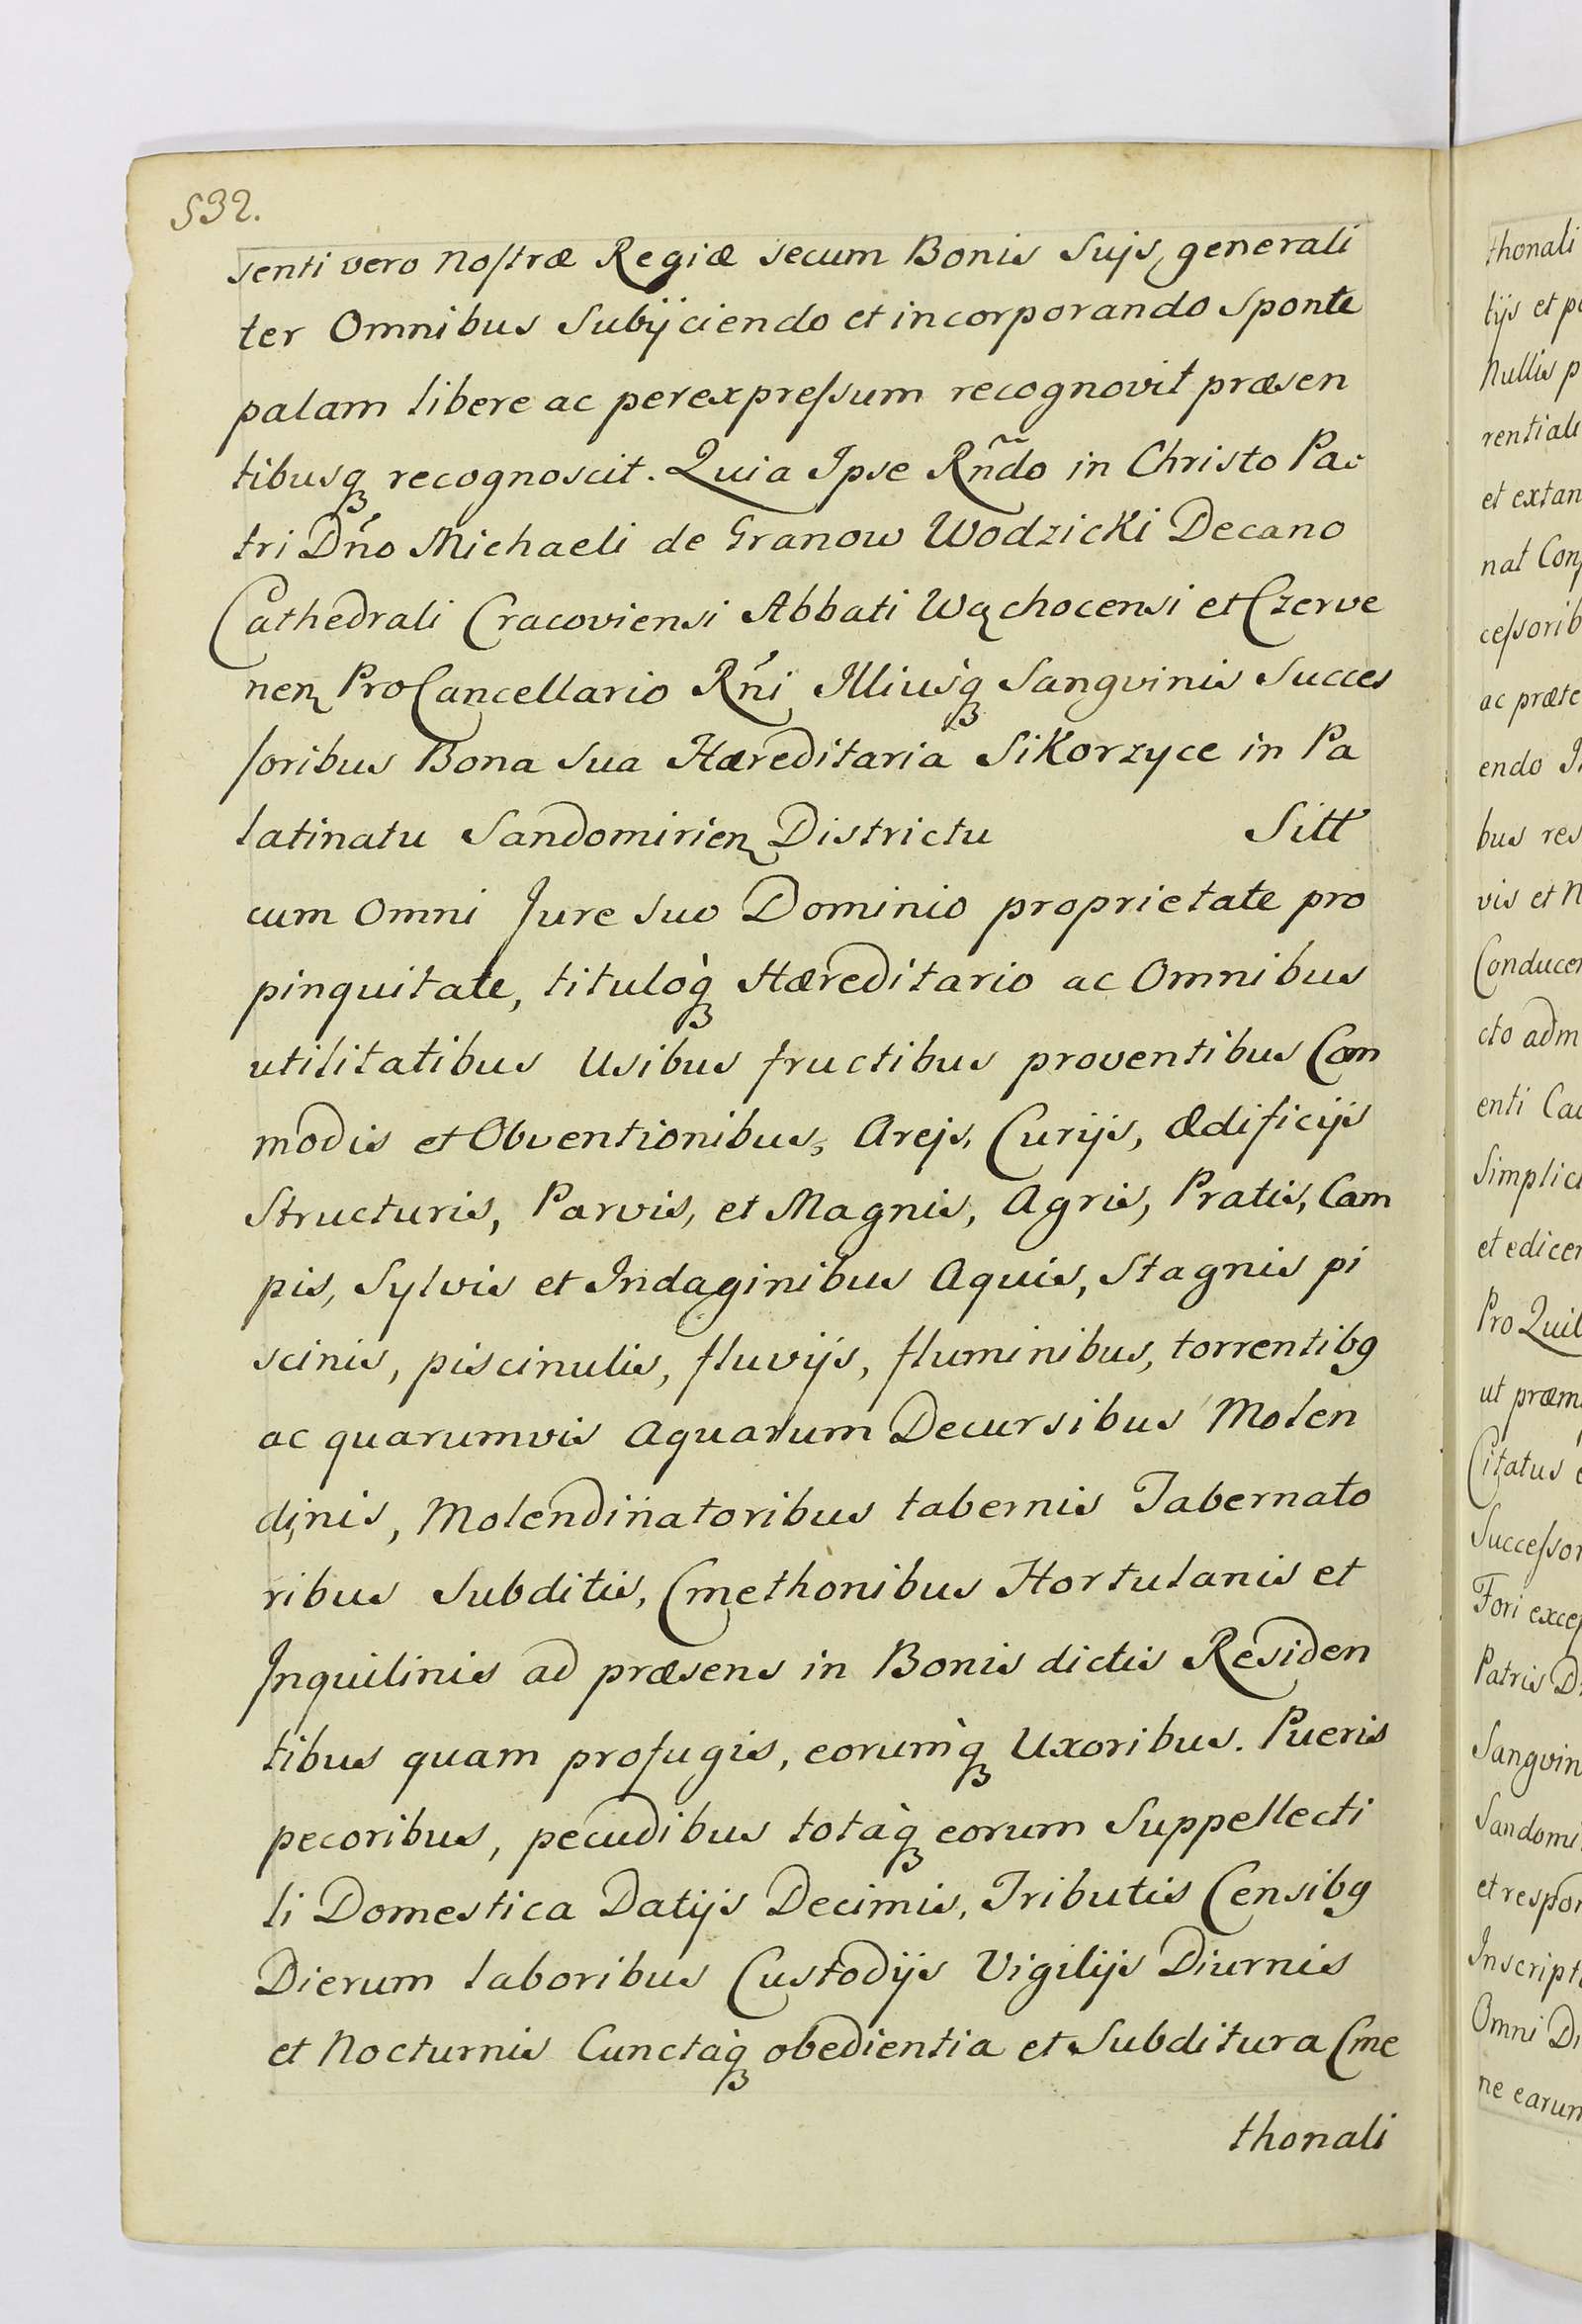 532.
senti vero Nostræ Regiæ secum Bonis Sujs, generali
ter Omnibus Subijciendo et incorporando Sponte
palam libere ac perexpressum recognovit præsen
tibusq́ȝ recognoscit. Quia Ipse Rñdo in Christo Pa:
tri Dńo Michaeli de Granow Wodzicki Decano
Cathedrali Cracoviensi Abbati Wąchocensi et Czerve
nen̨ ProCancellario Rńi Illiusq̀ȝ Sangvinis Succes
soribus Bona Sua Hæreditaria Sikorzyce in Pa
latinatu Sandomirien̨ Districtu Sitt
cum Omni Jure Suo Dominio proprietate pro
pinquitate, tituloq̀ȝ Hæreditario ac Omnibus
utilitatibus Usibus fructibus proventibus Com
modis et Obventionibus, Arejs, Curijs, Ædificijs
Structuris, Parvis, et Magnis, Agris, Pratis, Cam
pis, Sylvis et Indaginibus Aquis, Stagnis pi
scinis, piscinulis, fluvijs, fluminibus, torrentibꝯ
ac quarumvis Aquarum Decursibus Molen
dinis, Molendinatoribus tabernis Tabernato
ribus Subditis, Cmethonibus Hortulanis et
Inquilinis ad præsens in Bonis dictis Residen
tibus quam profugis, eorumq̀ȝ Uxoribus. Pueris
pecoribus, pecudibus totaq̀ȝ eorum Suppellecti
li Domestica Datijs Decimis, Tributis Censibꝯ
Dierum laboribus Custodijs Vigilijs Diurnis
et Nocturnis Cunctaq̀ȝ obedientia et Subditura Cme
thonali
thonali
tijs et p
Nullis p
rential
et extan
nat Con
cessorib
ac præte
endo
bus res
vis et N
Conducen
cto adm
enti Ca
Simplic
et edicen
Pro Quil
ut præm
Citatus
Successor
Fori excep
Patris D
Sangvin
Sandomi
et respon
Inscript
Omni Di
ne earum